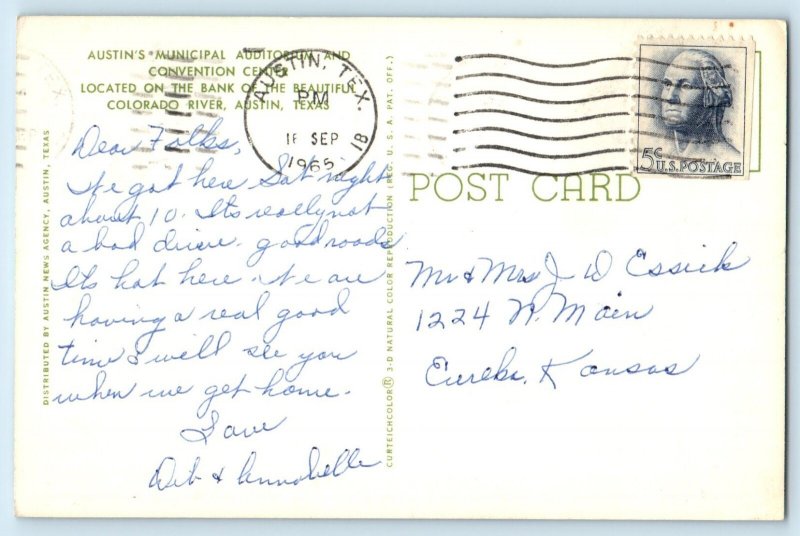 AUSTIN'S MUNICIPAL AUDITORIUM AND
CONVENTION CENTER
LOCATED ON THE BANK OF THE BEAUTIFUL
COLORADO RIVER, AUSTIN, TEXAS
Dear Folks,
We got here Sat night
about 10. Its really not
a bad drive. good roads
Its hot here. We are
having a real good
time & will see you
when we get home.
Love
& Annabelle
DISTRIBUTED BY AUSTIN NEWS AGENCY, AUSTIN, TEXAS
CURTEICHCOLOR® 3-D NATURAL COLOR REPRODUCTION (REG. U. S. A. PAT. OFF.)
AUSTIN, TEX.
PM
SEP
1965
5¢ U.S. POSTAGE
POST CARD
Mr & Mrs J D Essick
1224 N. Main
Eureka, Kansas